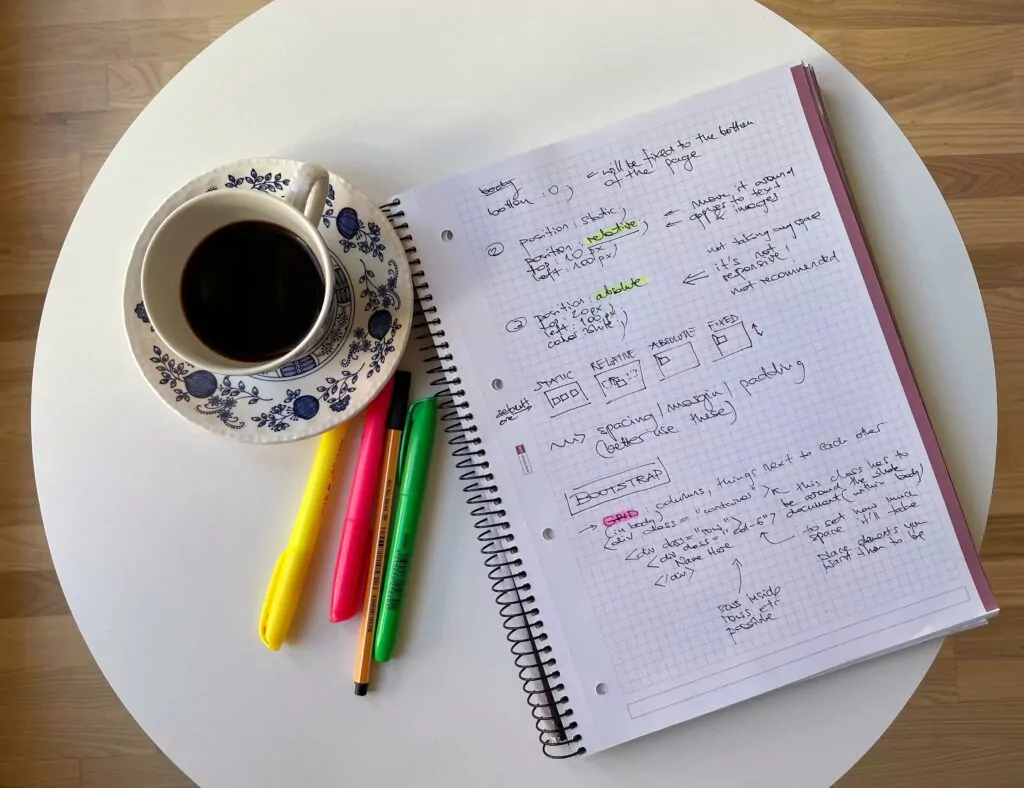 body
bottom : 0; = will be fixed to the bottom
of the page
② position : static;
position : relative;
top : 10 px;
left : 100 px;
= move it around
applies to text
& images
③ position : absolute
top : 20px;
left : 100px;
color : white;
not taking any space
it's not
responsive!
not recommended
default
one
STATIC RELATIVE ABSOLUTE FIXED
spacing/margin/padding
(better use these)
BOOTSTRAP
→ GRID : columns, things next to each other
(in body)
<div class="container">
this class has to
be around the whole
document (within body)
<div class="row">
<div class="col-6">
Name Here
</div>
to set how much
space it'll take
Place elements you
want them to be
rows inside
rows etc
possible